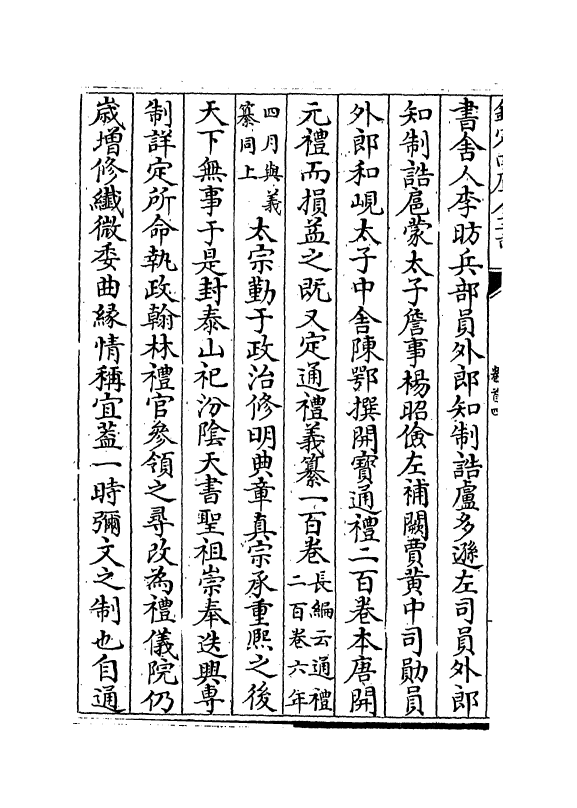 欽定四庫全書
卷首四
書舍人李昉兵部員外郎知制誥盧多遜左司員外郎
知制誥扈蒙太子詹事楊昭儉左補闕賈黄中司勛員
外郎和峴太子中舍陳鄂撰開寳通禮二百卷本唐開
元禮而損益之既又定通禮義纂一百卷長編云通禮二百卷六年
四月與義纂同上太宗勤于政治修明典章真宗承重熙之後
天下無事于是封泰山祀汾陰天書聖祖崇奉迭興專
制詳定所命執政翰林禮官參領之尋改為禮儀院仍
歲增修纎微委曲緣情稱宜葢一時彌文之制也自通